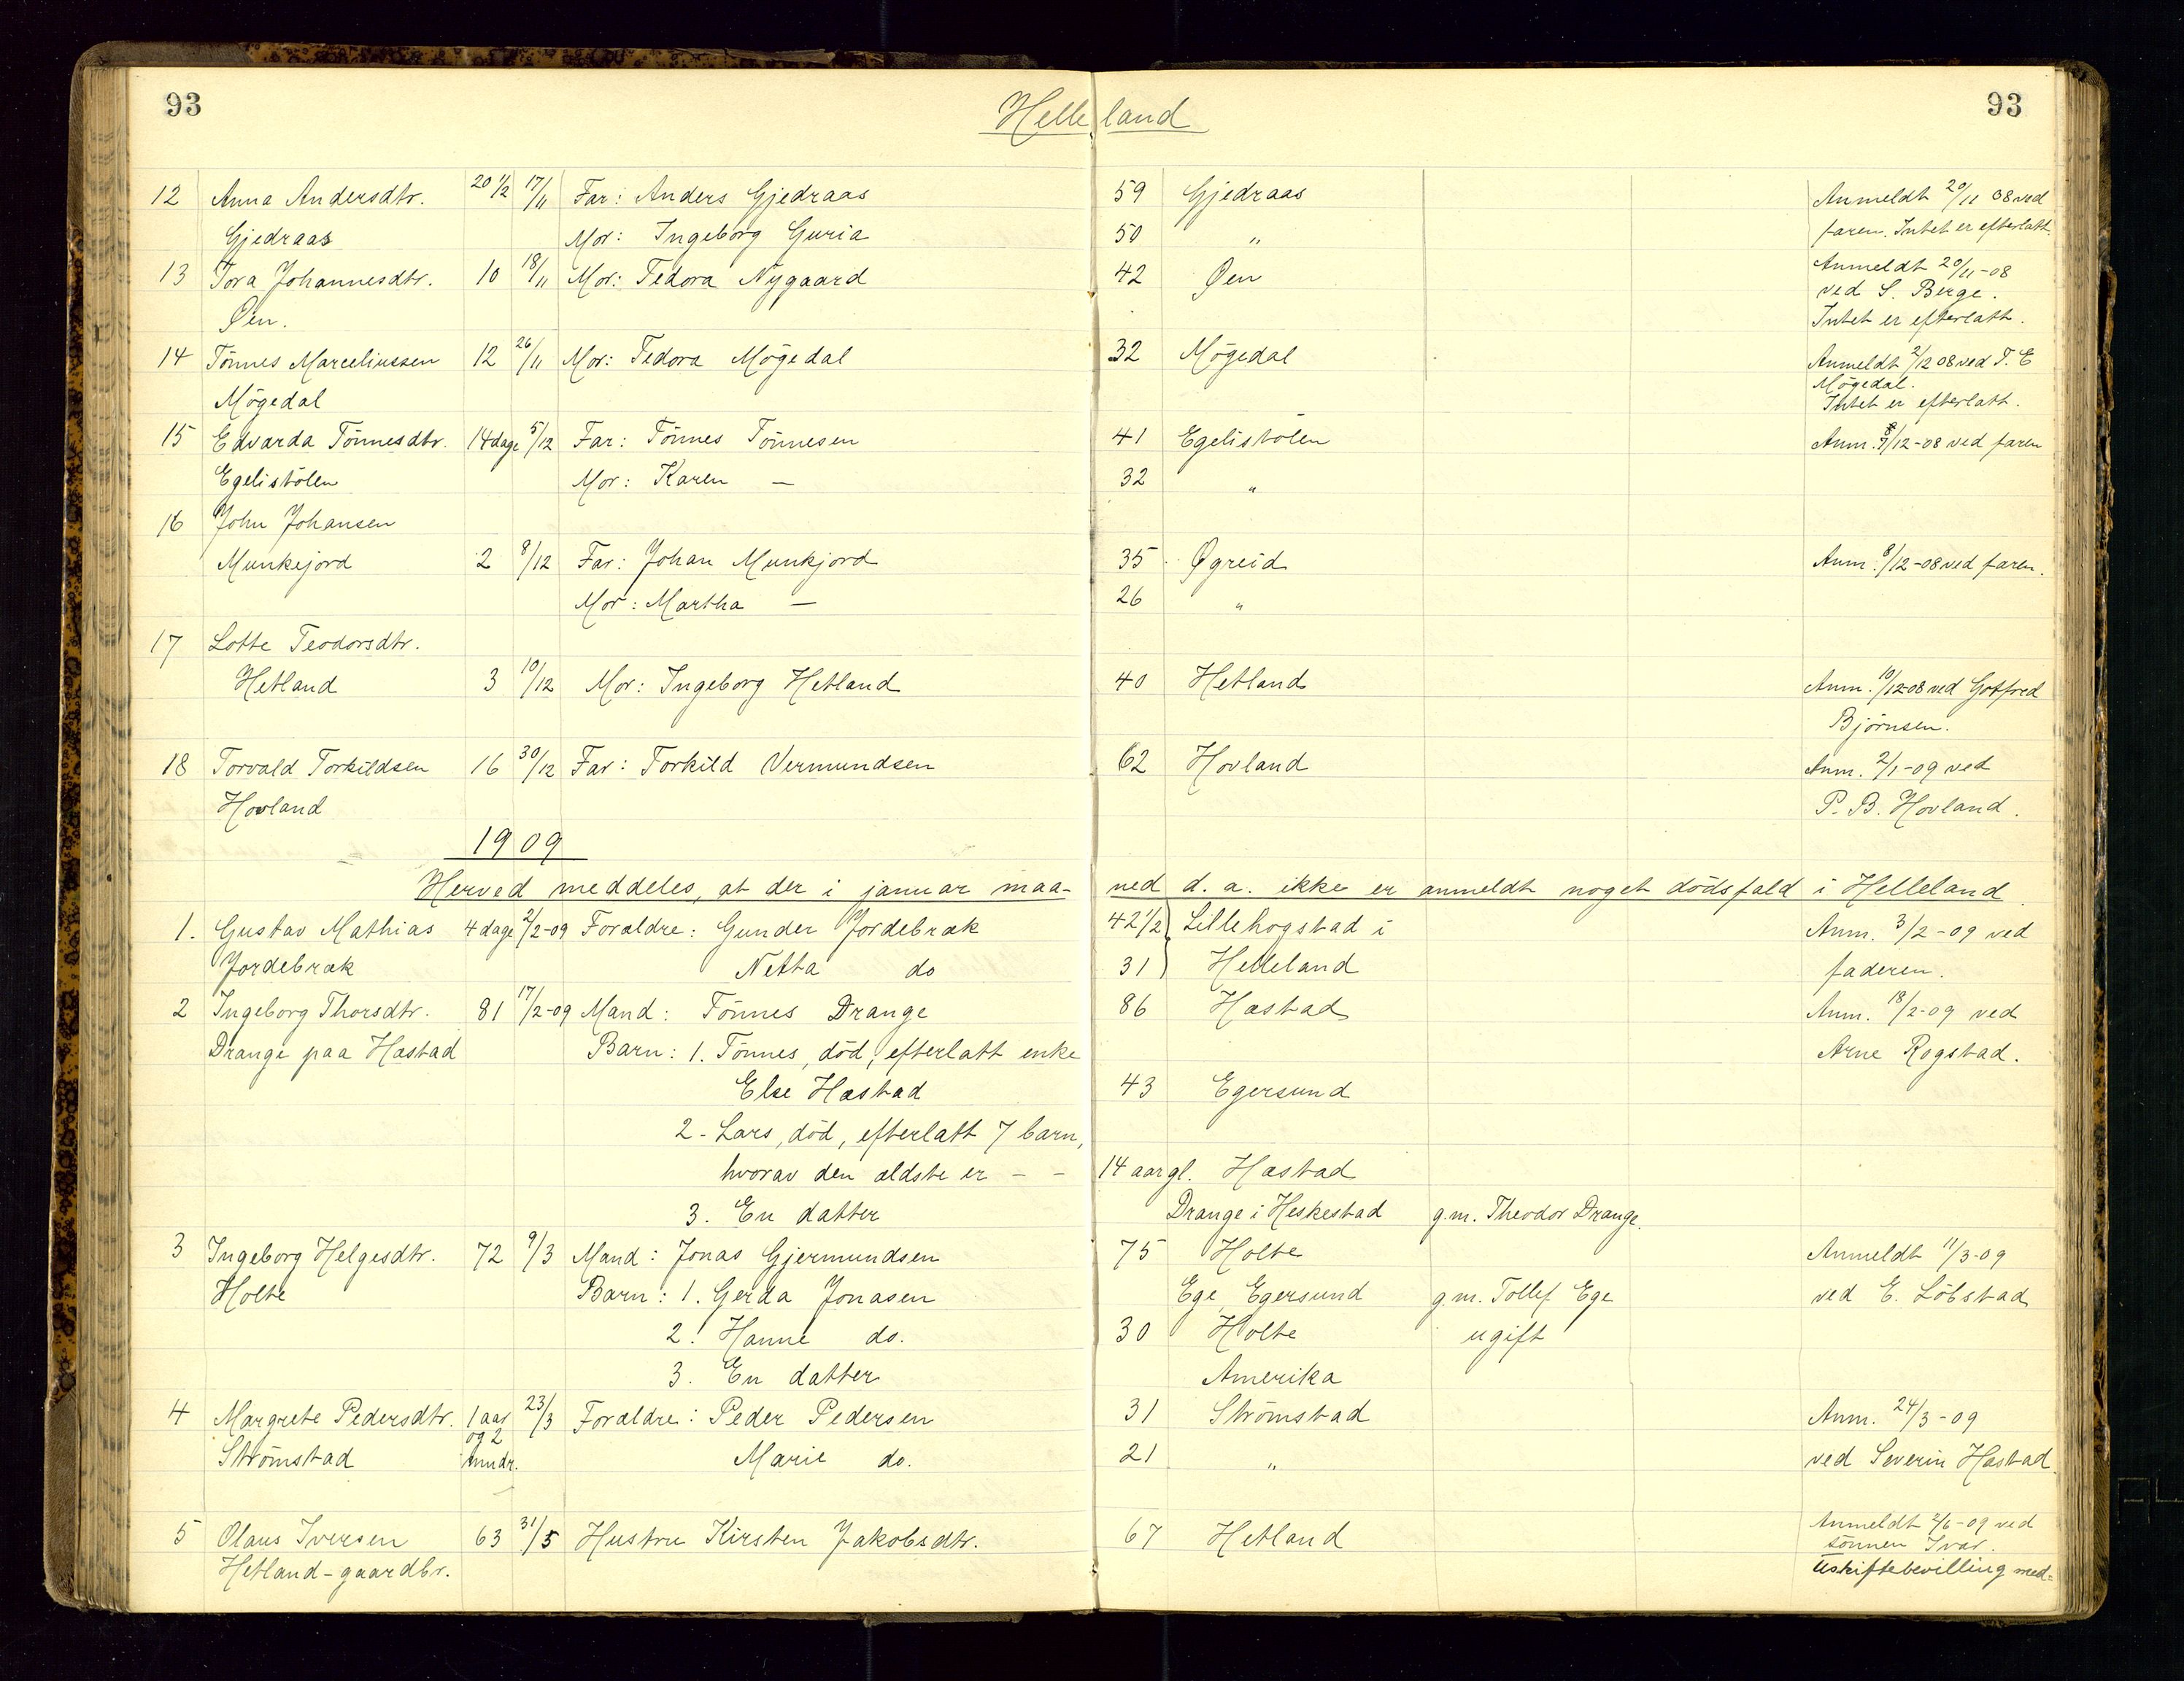 93
Helleland
93
12 Anna Andersdtr. 20 1/2 17/11 Far: Anders Gjedraas 59 Gjedraas Anmeldt 20/11 08 ved
Gjedraas Mor: Ingeborg Guria 50 " faren. Intet er efterlatt.
13 Tora Johannesdtr. 10 18/11 Mor: Tedora Nygaard 42 Øen Anmeldt 20/11-08
ved S. Berge.
Øen. Intet er efterlatt.
14 Tönnes Marceliussen 12 26/11 Mor: Tedora Mögedal 32 Mögedal Anmeldt 2/12 08 ved T. E
Mögedal.
Mögedal Intet er efterlatt.
15 Edvarda Tönnesdtr. 14 dage 5/12 Far: Tönnes Tönnesen 41 Egelistölen Anm. 8/12-08 ved faren
Egelistölen Mor: Karen — 32 "
16 John Johansen
Munkejord 2 8/12 Far: Johan Munkjord 35 Øgreid Anm. 8/12-08 ved faren.
Mor: Martha — 26 "
17 Lotte Teodorsdtr.
Hetland 3 10/12 Mor: Ingeborg Hetland 40 Hetland Anm. 10/12-08 ved Gotfred
Björnsen.
18 Torvald Torkildsen 16 30/12 Far: Torkild Vermundsen 62 Hovland Anm. 2/1-09 ved
Hovland P. B. Hovland.
1909
Herved meddeles, at der i januar maa- ned d. a. ikke er anmeldt noget dödsfald i Helleland.
1. Gustav Mathias 4 dage 2/2-09 Forældre: Gunder Jordebræk 42 1/2 Lillehogstad i Anm. 3/2-09 ved
Jordebræk Netta do 31 Helleland faderen.
2 Ingeborg Thorsdtr. 81 17/2-09 Mand: Tönnes Drange 86 Hæstad Anm. 18/2-09 ved
Drange paa Hæstad Barn: 1. Tönnes, död, efterlatt enke Arne Rogstad.
Else Hæstad 43 Egersund
2- Lars, död, efterlatt 7 barn,
hvorav den ældste er - - 14 aar gl. Hæstad
3. En datter Drange i Heskestad g.m. Theodor Drange.
3 Ingeborg Helgesdtr. 72 9/3 Mand: Jonas Gjermundsen 75 Holte Anmeldt 11/3-09
Holte Barn: 1. Gerda Jonasen Ege Egersund g.m. Tollef Ege ved E. Löbstad
2. Hanne do. 30 Holte ugift
3. En datter Amerika
4 Margrete Pedersdtr. 1 aar 23/3 Forældre: Peder Pedersen 31 Strömstad Anm. 24/3-09
og 2
Strömstad mndr. Marie do. 21 " ved Severin Hæstad.
5 Olaus Iversen 63 31/5 Hustru Kirsten Jakobsdtr. 67 Hetland Anmeldt 2/6-09 ved
sönnen Ivar.
Hetland-gaardbr. Uskiftebevilling med-